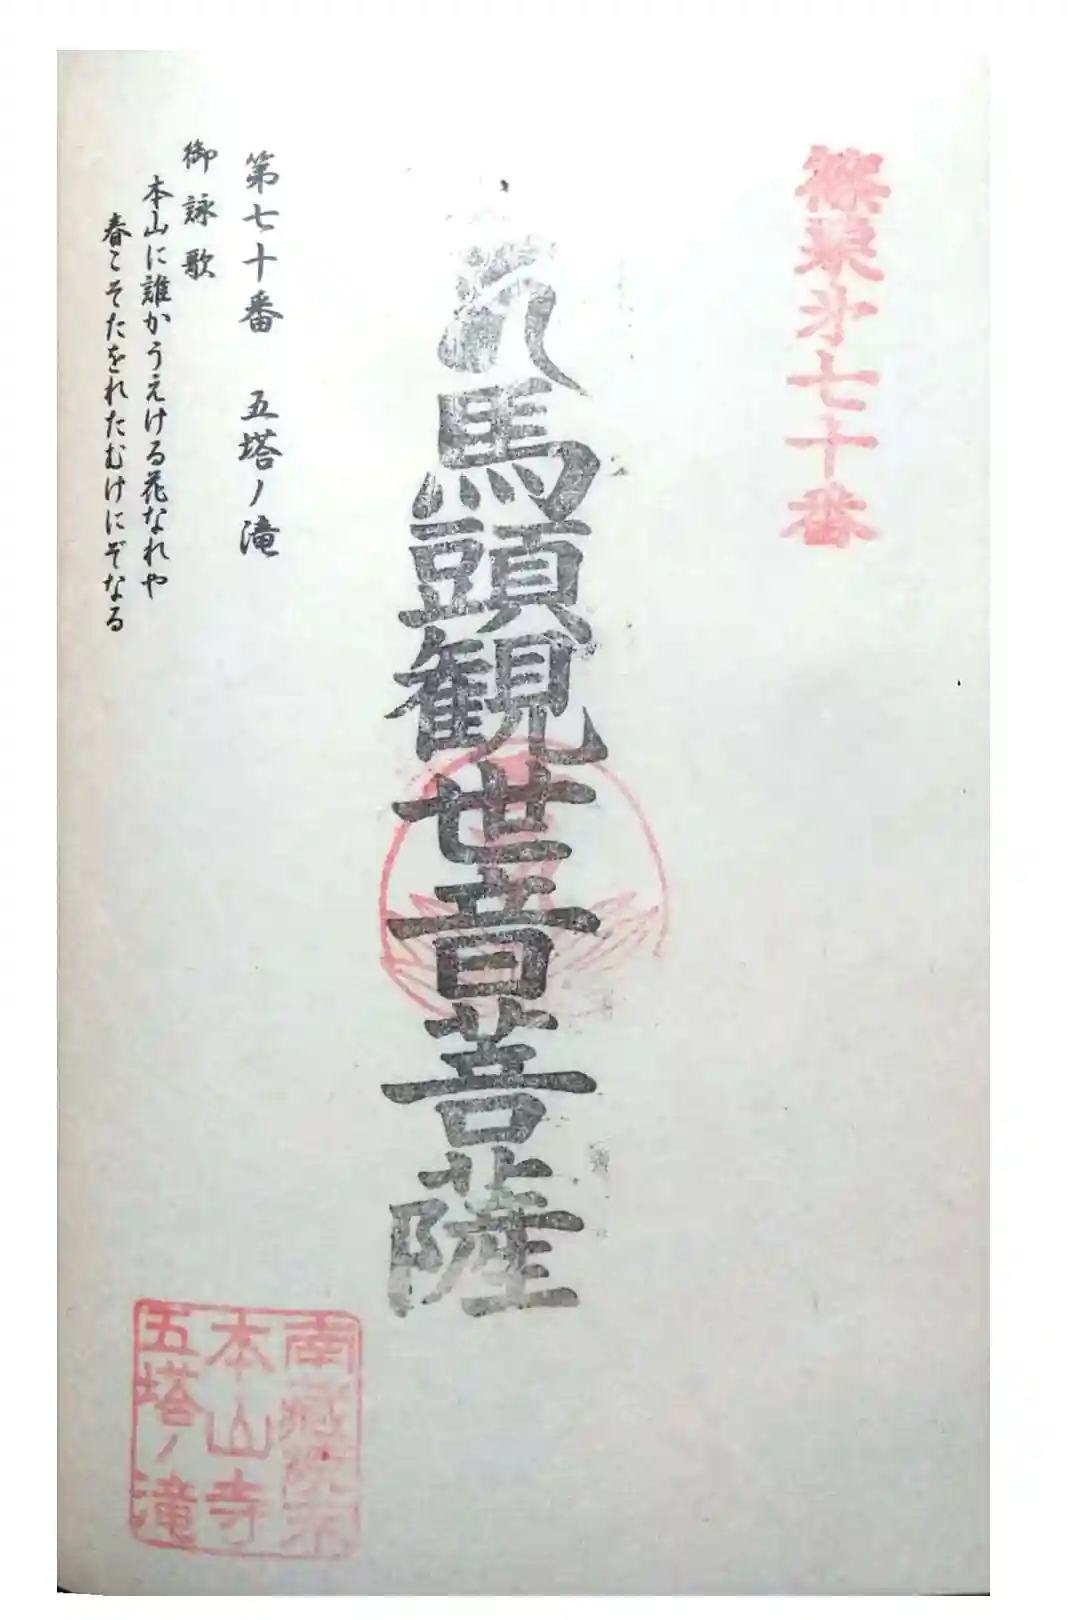 篠栗㐧七十番
馬頭観世音菩薩
第七十番 五塔ノ滝
御詠歌
本山に誰かうえける花なれや
春こそたをれたむけにぞなる
南蔵院
本山寺
五塔ノ滝